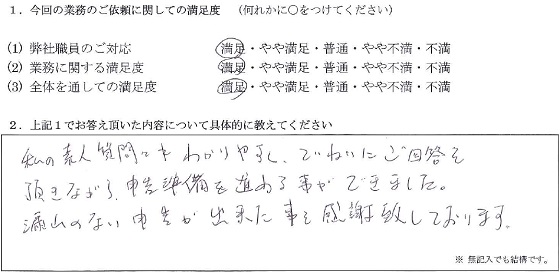 １．今回の業務のご依頼に関しての満足度　（何れかに○をつけてください）
(1) 弊社職員のご対応　満足・やや満足・普通・やや不満・不満
(2) 業務に関する満足度　満足・やや満足・普通・やや不満・不満
(3) 全体を通しての満足度　満足・やや満足・普通・やや不満・不満
２．上記１でお答え頂いた内容について具体的に教えてください
私の素人質問にもわかりやすく、ていねいにご回答を
頂きながら、申告準備を進める事ができました。
漏れのない申告が出来た事を感謝致しております。
※ 無記入でも結構です。